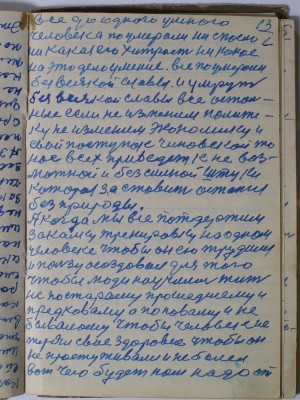 13
Все до одного умного
человека поумерали ни спосло
ни какая его хитрость ни какое
на это дело умение. все поумерали
без всякой славы. и умрут
без всякой славы все осталь-
ные если не изменем полити-
ку не изменем Экономику и
свой поступок чиновской то
нас всех приведет к не воз-
можной и бессильной штуки
которая заставит остатся
без природы.
А когда мы все потдержим
закалку тренировку на одном
человеке чтобы он его трудилии
и пользу создовал для того
чтобы люди научились жить
не постарому прошедшему и
предковому а по новому и не
бывалому чтобы человек не
терял свае здоровье чтобы он
не простуживался и не болел
вот чего будет нам надо от